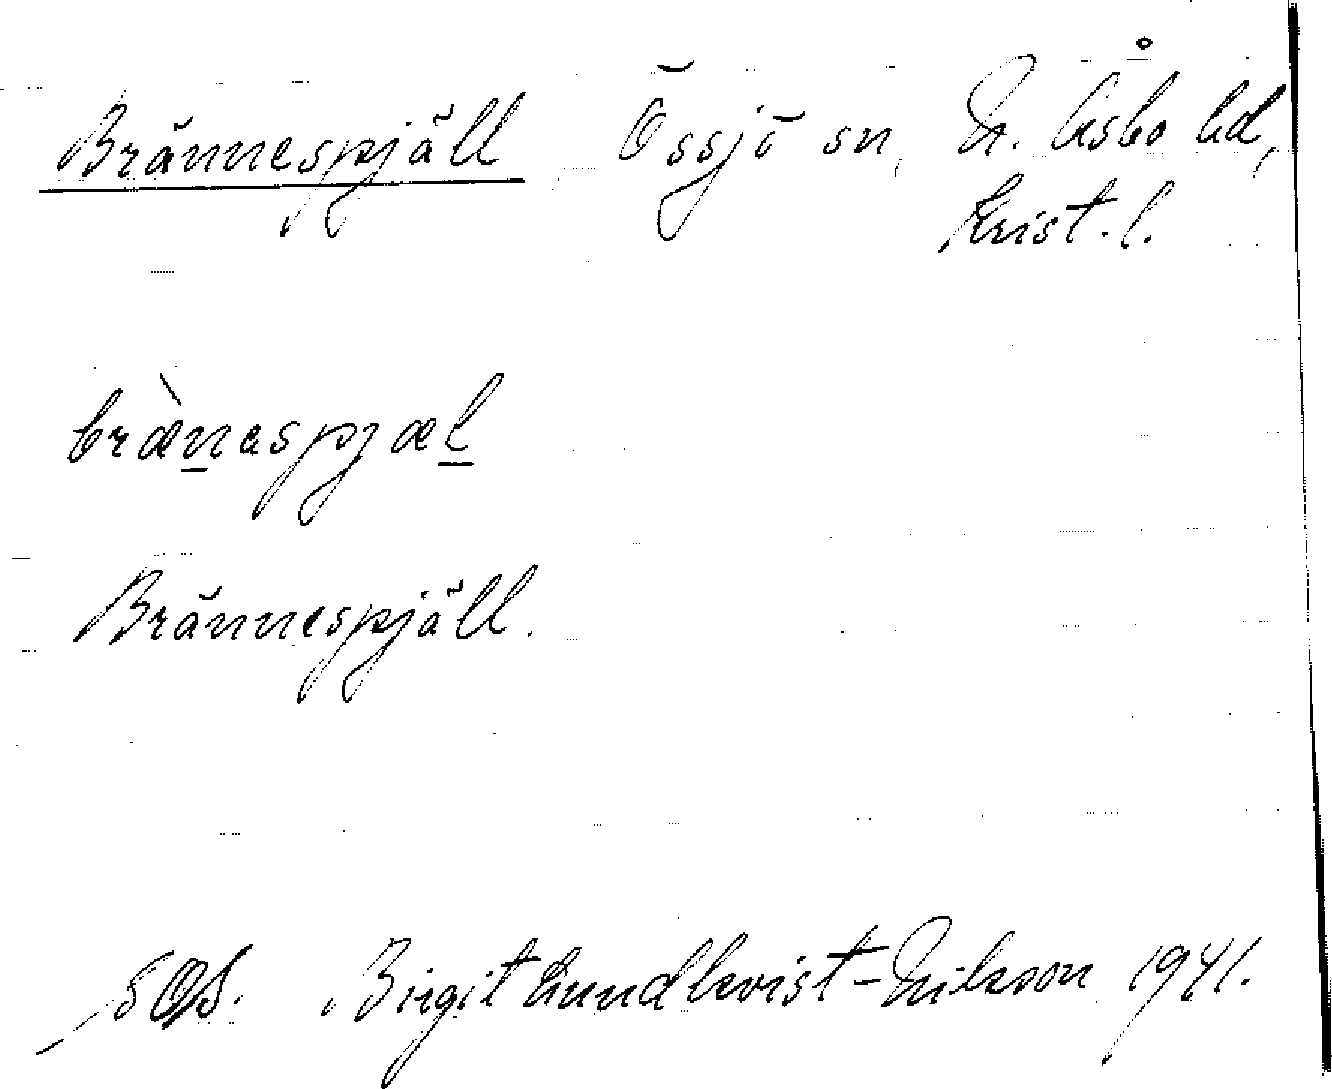 Brännespjäll Össjö sn, N. Åsbo hd,
Krist. l.
bræ̀nespjæl
Brännespjäll.
Birgit Lundkvist-Nilsson 1941.